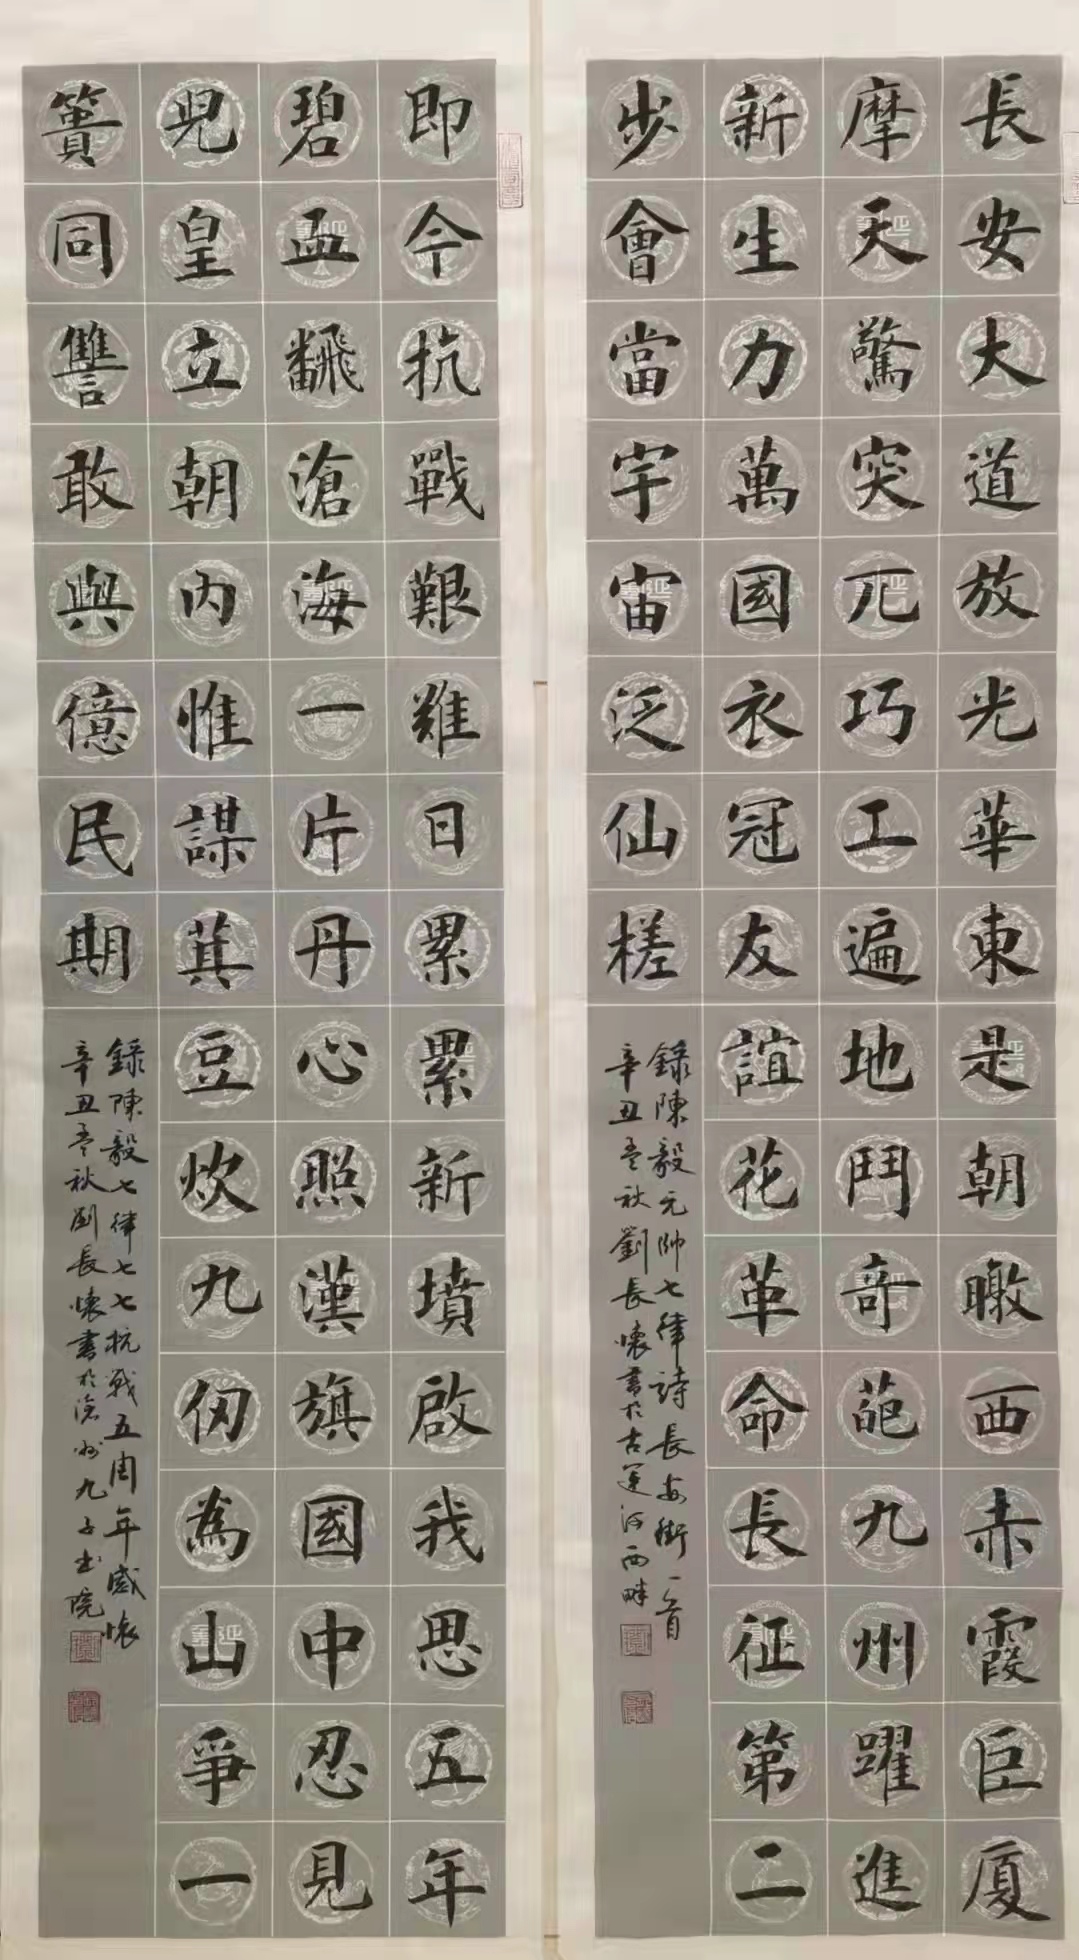 長安大道放光華東是朝暾西赤霞巨厦
摩天驚突兀巧工遍地鬥奇葩九州躍進
新生力萬國衣冠友誼花革命長征第二
步會當宇宙泛仙槎
錄陳毅元帥七律詩長安街一首
辛丑孟秋劉長懷書於古運河西畔
即今抗戰艱難日累累新墳啟我思五年
碧血飜滄海一片丹心照漢旗國中忍見
兒皇立朝內惟謀萁豆炊九仞為山爭一
簣同讐敢與億民期
錄陳毅七律七七抗戰五周年感懷
辛丑孟秋劉長懷書於滄州九子書院